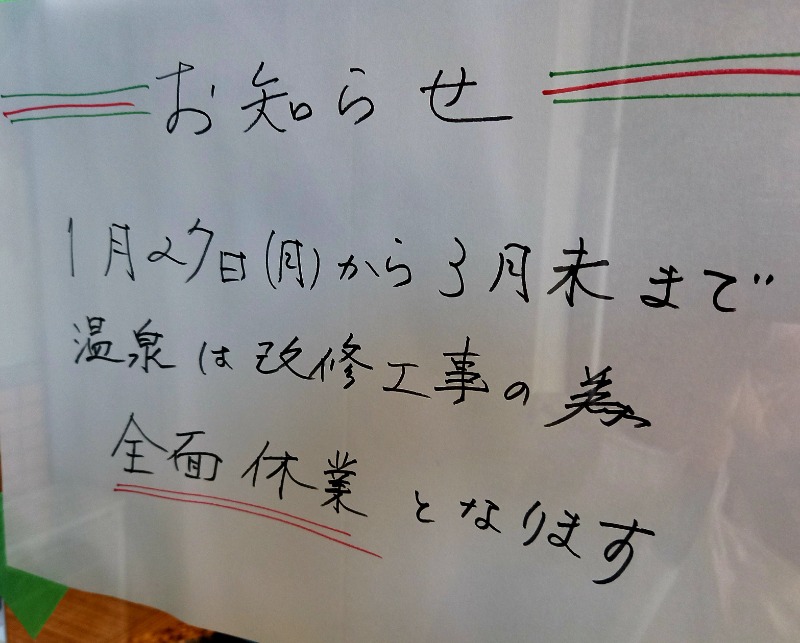 お知らせ
1月27日(月)から3月末まで
温泉は改修工事の為
全面休業となります